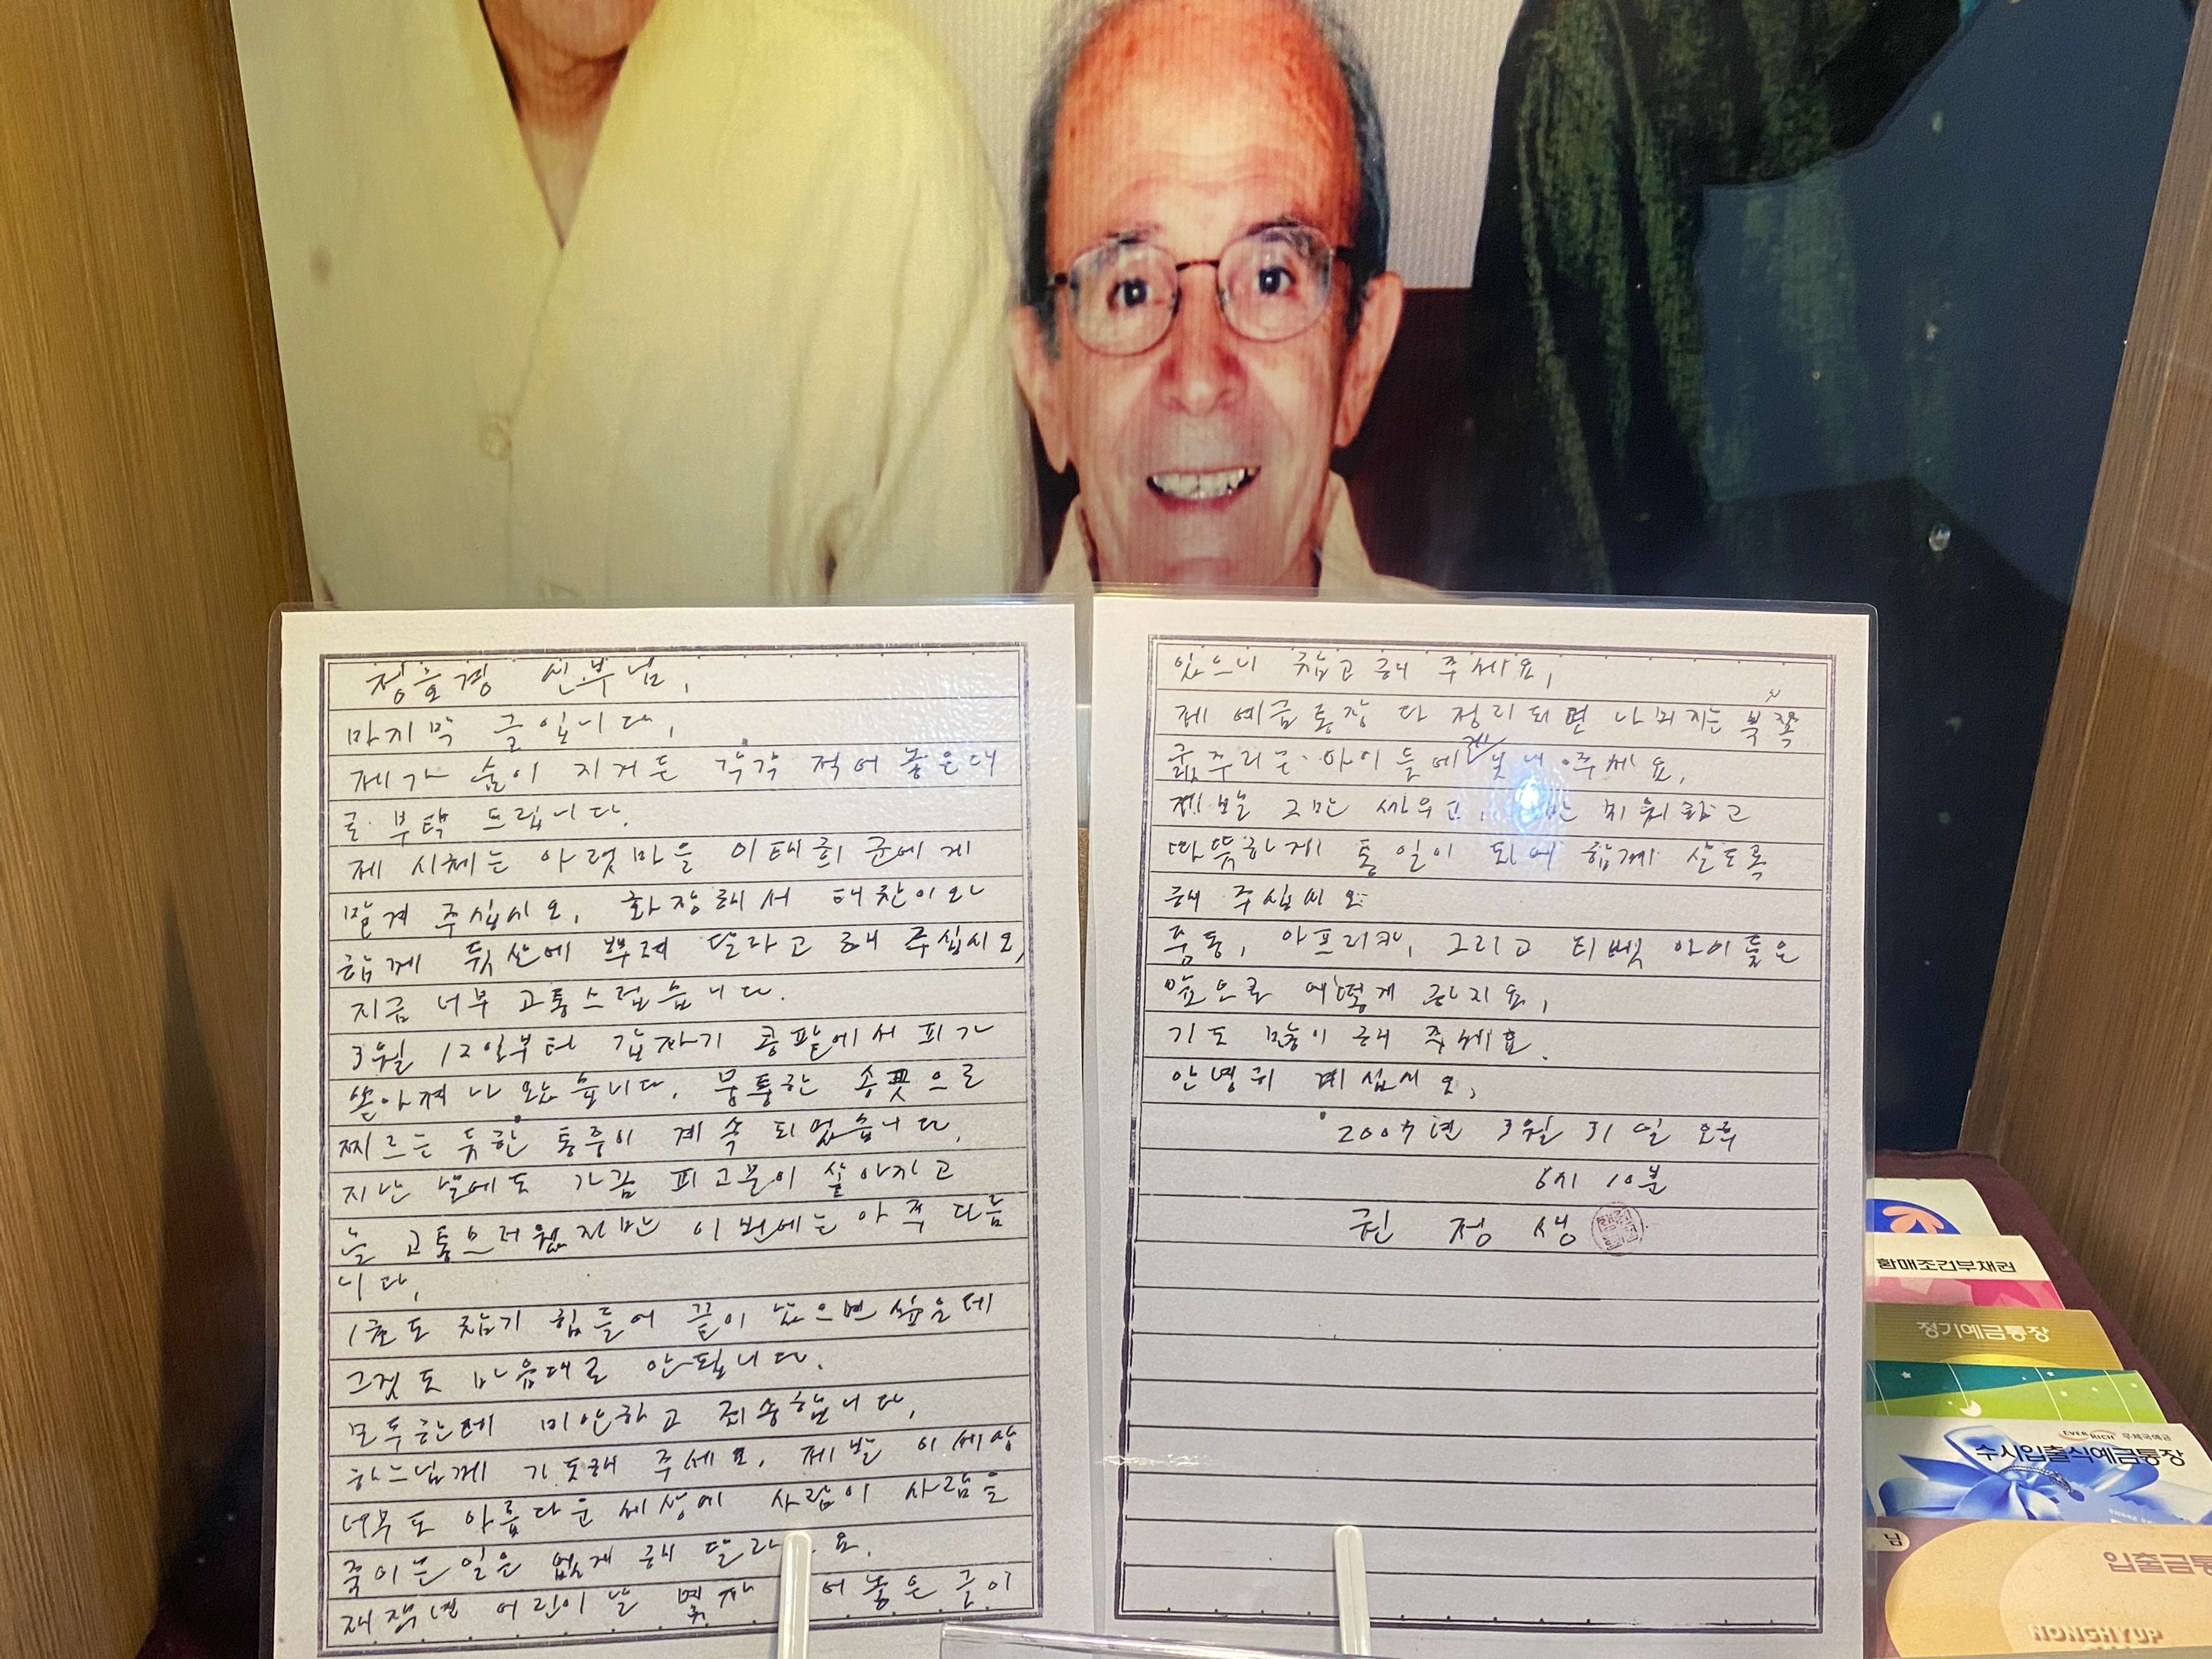 정호경 신부님,
마지막 글입니다,
제가 숨이 지거든 각각 적어 놓은대
로 부탁 드립니다.
제 시체는 아랫마을 이태희 군에게
맡겨 주십시오, 화장해서 태찬이와
함께 뒷산에 뿌려 달라고 해 주십시오,
지금 너무 고통스럽습니다.
3월 12일부터 갑자기 콩팥에서 피가
쏟아져 나왔습니다. 뭉툭한 송곳으로
찌르는 듯한 통증이 계속 되었습니다,
지난 날에도 가끔 피고름이 쏟아지고
늘 고통스러웠지만 이번에는 아주 다릅
니다,
1초도 참기 힘들어 끝이 났으면 싶은데
그것도 마음대로 안됩니다.
모두한테 미안하고 죄송합니다,
하느님께 기도해 주세요. 제발 이 세상
너무도 아름다운 세상에 사람이 사람을
죽이는 일은 없게 해 요.
재작년 어린이날 어 놓은 글이
있으니 참고해 주세요,
제 예금통장 다 정리되면 나머지는 북쪽
굶주리는 아이들에게 보내 주세요.
제발 그만 싸우고, 미워하고
따뜻하게 통일이 되어 함께 살도록
해 주십시오
중동, 아프리카, 그리고 티벳 아이들은
앞으로 어떻게 하지요,
기도 많이 해 주세요.
안녕히 계십시오,
2007년 3월 31일 오후
6시 10분
권 정 생
환매조건부채권
정기예금통장
EVER RICH 우체국예금
수시입출식예금통장
님
입출금
NONGHYUP